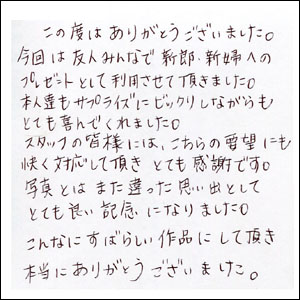 この度はありがとうございました。
今回は友人みんなで新郎・新婦への
プレゼントとして利用させて頂きました。
本人達もサプライズにビックリしながらも
とても喜んでくれました。
スタッフの皆様には、こちらの要望にも
快く対応して頂きとても感謝です。
写真とはまた違った思い出として
とても良い記念になりました。
こんなにすばらしい作品にして頂き
本当にありがとうございました。